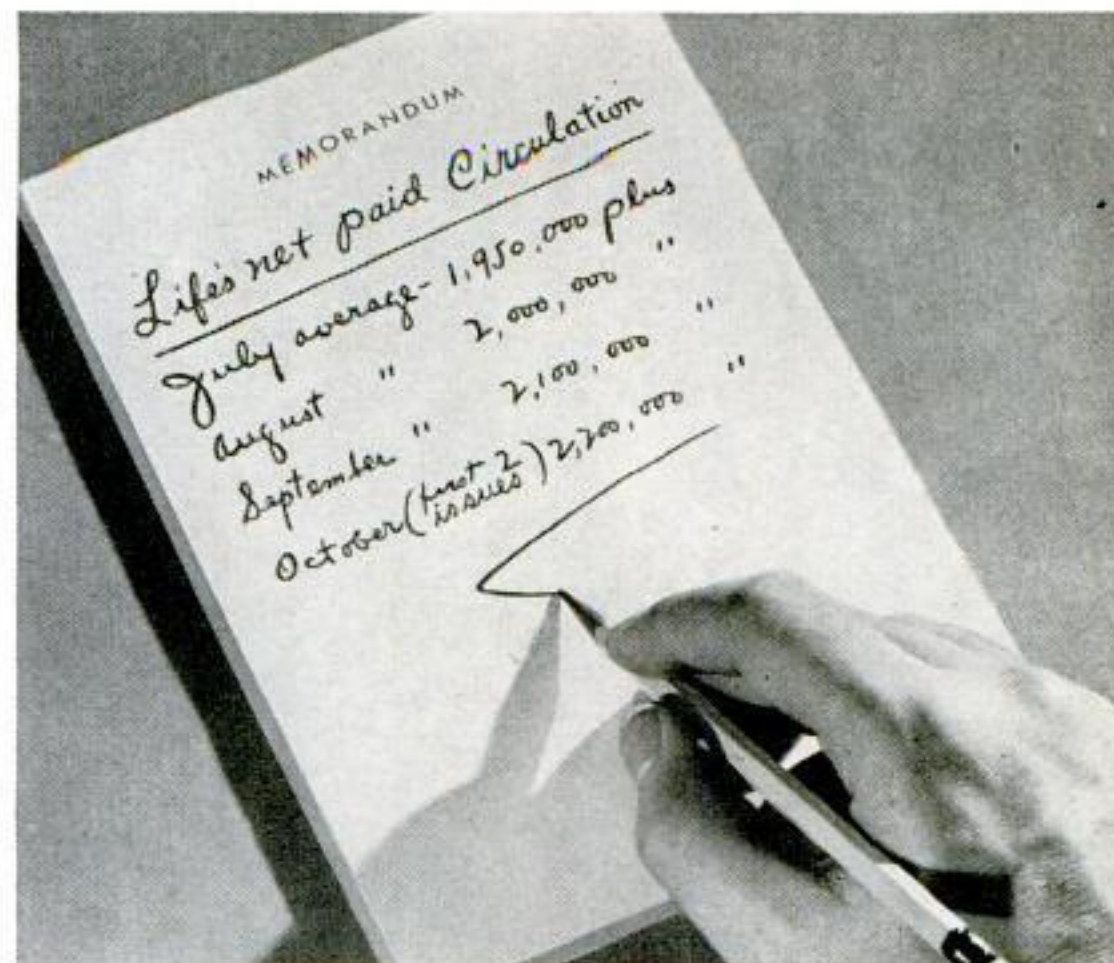 MEMORANDUM
Life's net paid Circulation
July average - 1,950,000 plus
August " 2,000,000 "
September " 2,100,000 "
October (first 2 issues) 2,200,000 "